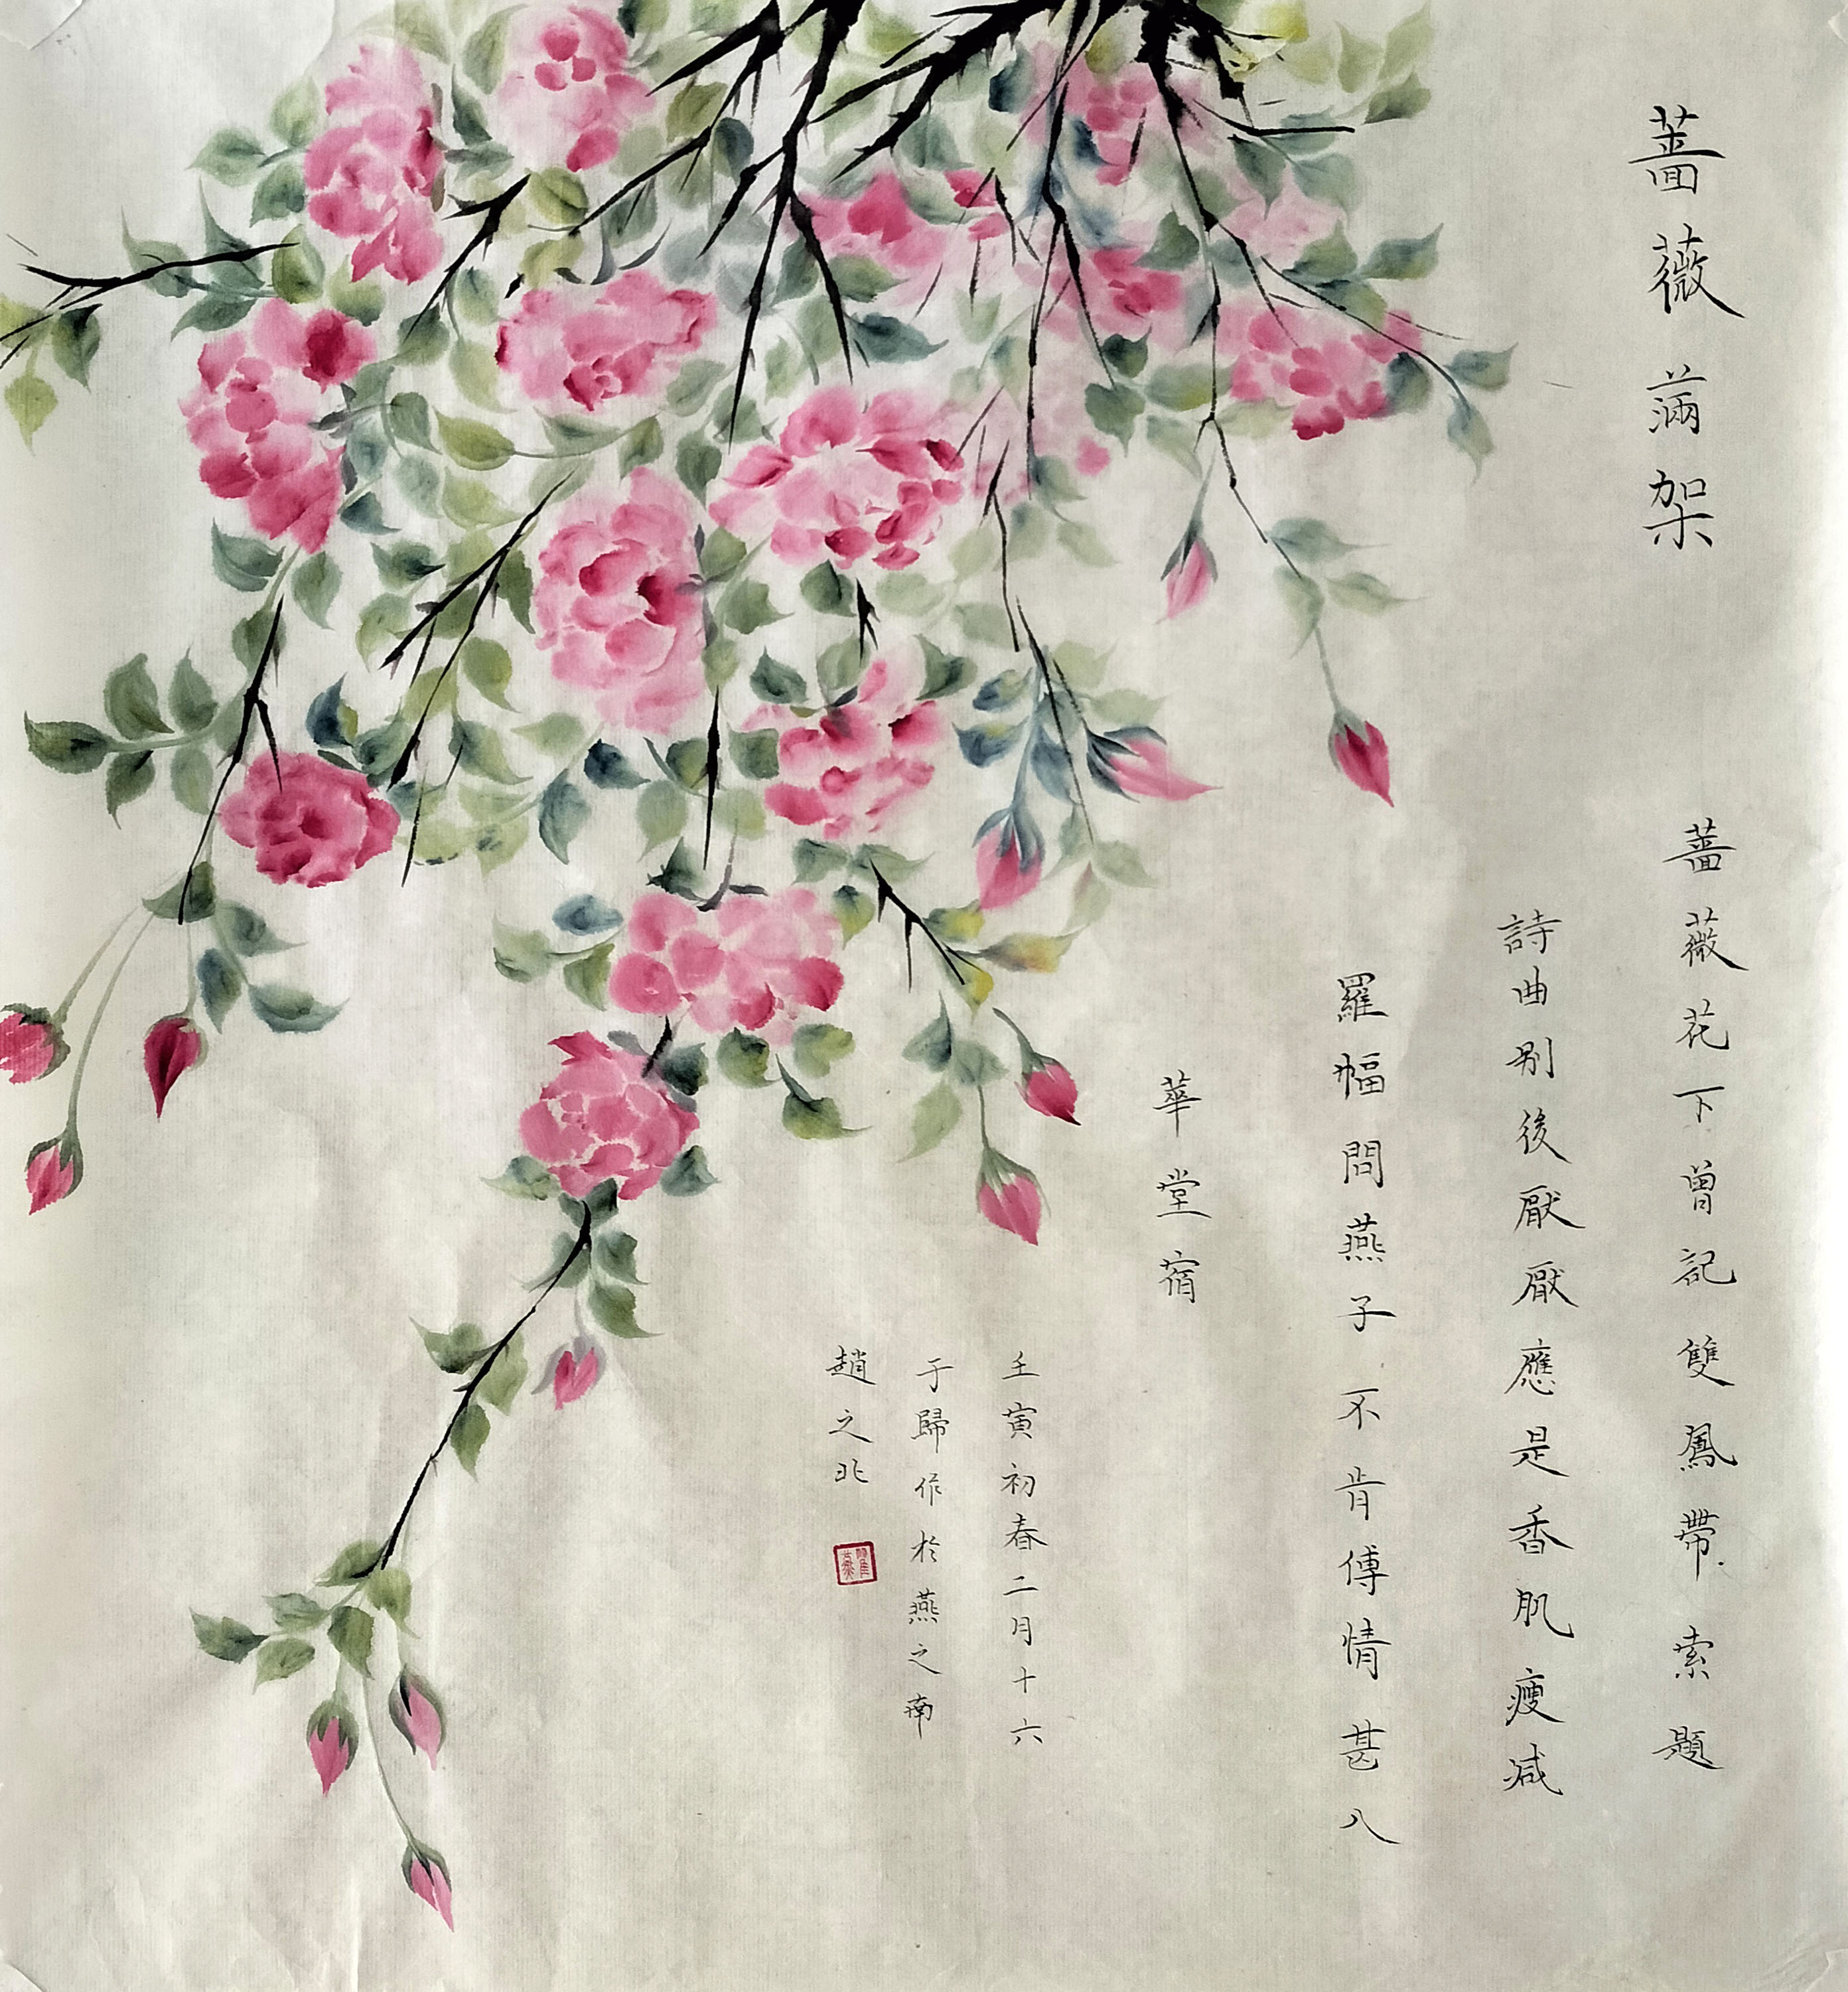 薔薇滿架
薔薇花下曾記雙鳳帶索題
詩曲别後厭厭應是香肌瘦减
羅幅問燕子不肯傳情甚八
華堂宿
壬寅初春二月十六
于歸作於燕之南
趙之北